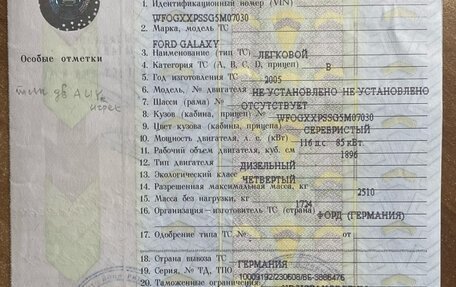 1. Идентификационный номер (VIN)
WFOGXXPSSG5M07030
2. Марка, модель ТС
FORD GALAXY
3. Наименование (тип ТС) ЛЕГКОВОЙ
4. Категория ТС (А, В, С, D, прицеп) В
5. Год изготовления ТС 2005
6. Модель, № двигателя НЕ УСТАНОВЛЕНО НЕ УСТАНОВЛЕНО
7. Шасси (рама) № ОТСУТСТВУЕТ
8. Кузов (кабина, прицеп) № WFOGXXPSSG5M07030
9. Цвет кузова (кабины, прицепа) СЕРЕБРИСТЫЙ
10. Мощность двигателя, л. с. (кВт) 116 л.с 85 кВт.
11. Рабочий объем двигателя, куб. см 1896
12. Тип двигателя ДИЗЕЛЬНЫЙ
13. Экологический класс ЧЕТВЕРТЫЙ
14. Разрешенная максимальная масса, кг 2510
15. Масса без нагрузки, кг 1724
16. Организация—изготовитель ТС (страна) ФОРД (ГЕРМАНИЯ)
17. Одобрение типа ТС №
18. Страна вывоза ТС ГЕРМАНИЯ
19. Серия, № ТД, ТПО 10009192/230608/ВЕ-5886476
20. Таможенные ограничения
Особые отметки